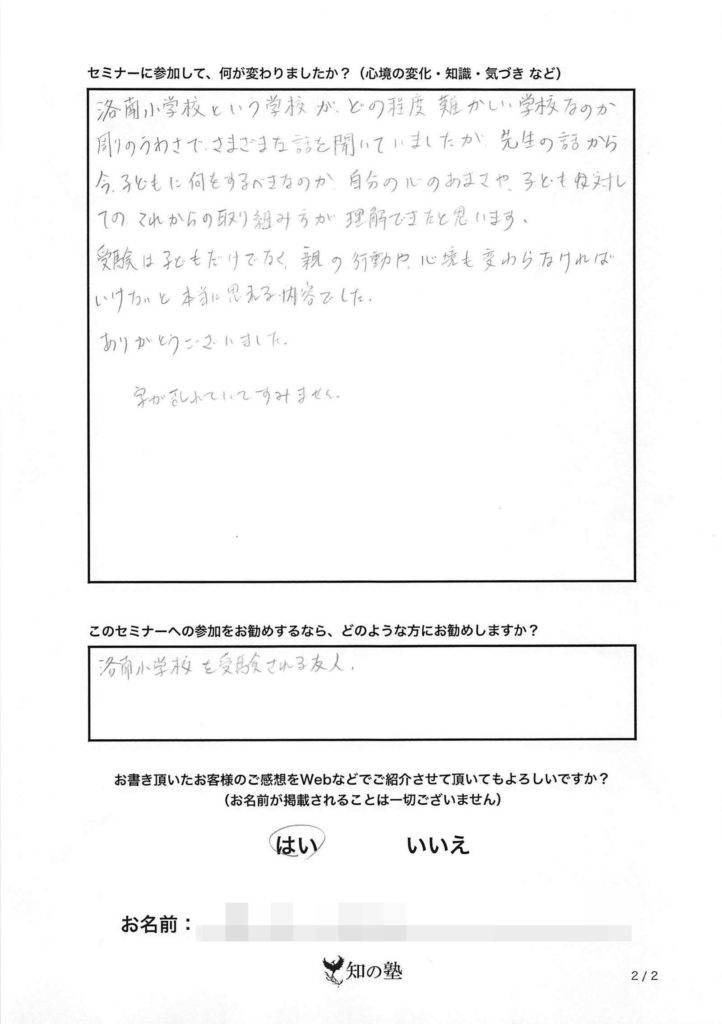 セミナーに参加して、何が変わりましたか？（心境の変化・知識・気づき など）
洛南小学校という学校が、どの程度 難かしい学校なのか
周りのうわさで、さまざまな話を聞いていましたが 先生の話から
今、子どもに何をするべきなのか、自分の心のあまさや、子どもに対し
ての これからの取り組み方が 理解できたと思います。
受験は子どもだけでなく、親の行動や、心境も変わらなければ
いけないと 本当に思える内容でした。
ありがとうございました。
字が乱れていてすみません。
このセミナーへの参加をお勧めするなら、どのような方にお勧めしますか？
洛南小学校を受験される友人。
お書き頂いたお客様のご感想をWebなどでご紹介させて頂いてもよろしいですか？
（お名前が掲載されることは一切ございません）
はい いいえ
お名前：
知の塾
2 / 2